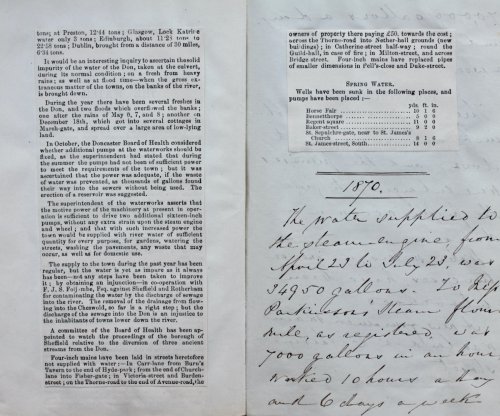 tons; at Preston, 12·44 tons; Glasgow, Loch Katrine
water only 3 tons; Edinburgh, about 11·23 tons to
22·58 tons; Dublin, brought from a distance of 30 miles,
6·34 tons.
It would be an interesting inquiry to ascertain the solid
impurity of the water of the Don, taken at the culvert,
during its normal condition; on a fresh from heavy
rains; as well as at flood time—when the gross ex-
traneous matter of the towns, on the banks of the river,
is brought down.
During the year there have been several freshes in
the Don, and two floods which overflowed the banks;
one after the rains of May 6, 7, and 8; another on
December 18th, which got into several cottages in
Marsh-gate, and spread over a large area of low-lying
land.
In October, the Doncaster Board of Health considered
whether additional pumps at the waterworks should be
fixed, as the superintendent had stated that during
the summer the pumps had not been of sufficient power
to meet the requirements of the town; but it was
ascertained that the power was adequate, if the waste
of water was prevented, as thousands of gallons found
their way into the sewers without being used. The
erection of a reservoir was suggested.
The superintendent of the waterworks asserts that
the motive power of the machinery at present in oper-
ation is sufficient to drive two additional sixteen-inch
pumps, without any extra strain upon the steam engine
and wheel; and that with such increased power the
town would be supplied with river water of sufficient
quantity for every purpose, for gardens, watering the
streets, washing the pavements, any waste that may
occur, as well as for domestic use.
The supply to the town during the past year has been
regular, but the water is yet as impure as it always
has been—and no steps have been taken to improve
it; by obtaining an injunction—in co-operation with
F. J. S. Foljambe, Esq. against Sheffield and Rotherham
for contaminating the water by the discharge of sewage
into the river. The removal of the drainage from flow-
ing into the Cheswold, so far is a right step; but the
discharge of the sewage into the Don is an injustice to
the inhabitants of towns lower down the river.
A committee of the Board of Health has been ap-
pointed to watch the proceedings of the borough of
Sheffield relative to the diversion of three ancient
streams from the Don.
Four-inch mains have been laid in streets heretofore
not supplied with water:—In Carr-lane from Burn's
Tavern to the end of Hyde-park; from the end of Church-
lane into Fisher-gate; in Victoria-street and Burden-
street; on the Thorne-road to the end of Avenue-road, the
owners of property there paying £50, towards the cost;
across the Thorne-road into Nether-hall grounds (new
buildings); in Catherine-street half-way; round the
Guild-hall, in case of fire; in Milton-street, and across
Bridge street. Four-inch mains have replaced pipes
of smaller dimensions in Pell's-close and Duke-street.
SPRING WATER.
Wells have been sunk in the following places, and
pumps have been placed:—
yds. ft. in.
Horse Fair 10 1 6
Bennetthorpe 5 0 0
Regent square 11 0 0
Baker-street 9 2 0
St. Sepulchre-gate, near to St. James's
Church 8 2 6
St. James-street, South 14 0 0
1870.
The water supplied to
the steam engine from
April 23 to July 23 was
34950 gallons. To Miss
Parkinsons Steam flour
mill, as registered was
7000 gallons in an hour
worked 10 hours a day
and 6 days a week